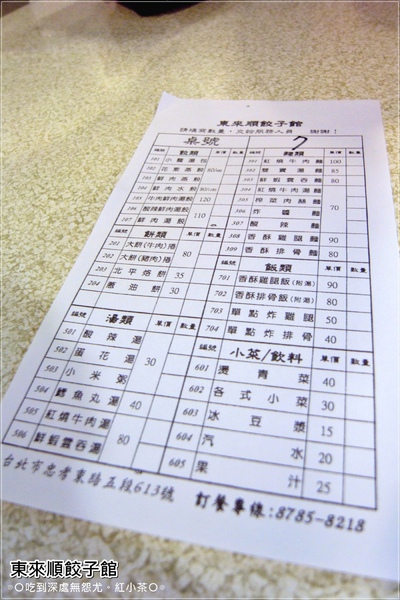 東來順餃子館
請填寫數量，交給服務人員 謝謝！
桌號 7
編號 餃類 單價 數量
101 小籠湯包
102 花素蒸餃 80/10
103 鮮肉蒸餃
104 鮮肉水餃
105 牛肉鮮肉湯餃 120
106 酸辣鮮肉湯餃
107 鮮肉湯餃 110
編號 餅類 單價 數量
201 大餅(牛肉)捲
202 大餅(豬肉)捲 80
203 北平烙餅 35
204 蔥油餅 30
編號 湯類 單價 數量
501 酸辣湯
502 蛋花湯 30
503 小米粥
504 鱈魚丸湯 40
505 紅燒牛肉湯
506 鮮蝦雲吞湯 80
編號 麵類 單價 數量
301 紅燒牛肉麵 100
302 雙寶湯麵 85
303 鮮蝦雲吞麵 80
304 紅燒牛肉湯麵
305 榨菜肉絲麵
306 炸醬麵 70
307 酸辣麵
308 香酥雞腿麵 90
309 香酥排骨麵 80
編號 飯類 單價 數量
701 香酥雞腿飯(附湯) 90
702 香酥排骨飯(附湯) 80
703 單點炸雞腿 50
704 單點炸排骨 40
編號 小菜/飲料 單價 數量
601 燙青菜 40
602 各式小菜 30
603 冰豆漿 15
604 汽水 20
605 果汁 25
台北市忠孝東路五段613號 訂餐專線:8785-8218
東來順餃子館
○吃到深處無怨尤。紅小茶○